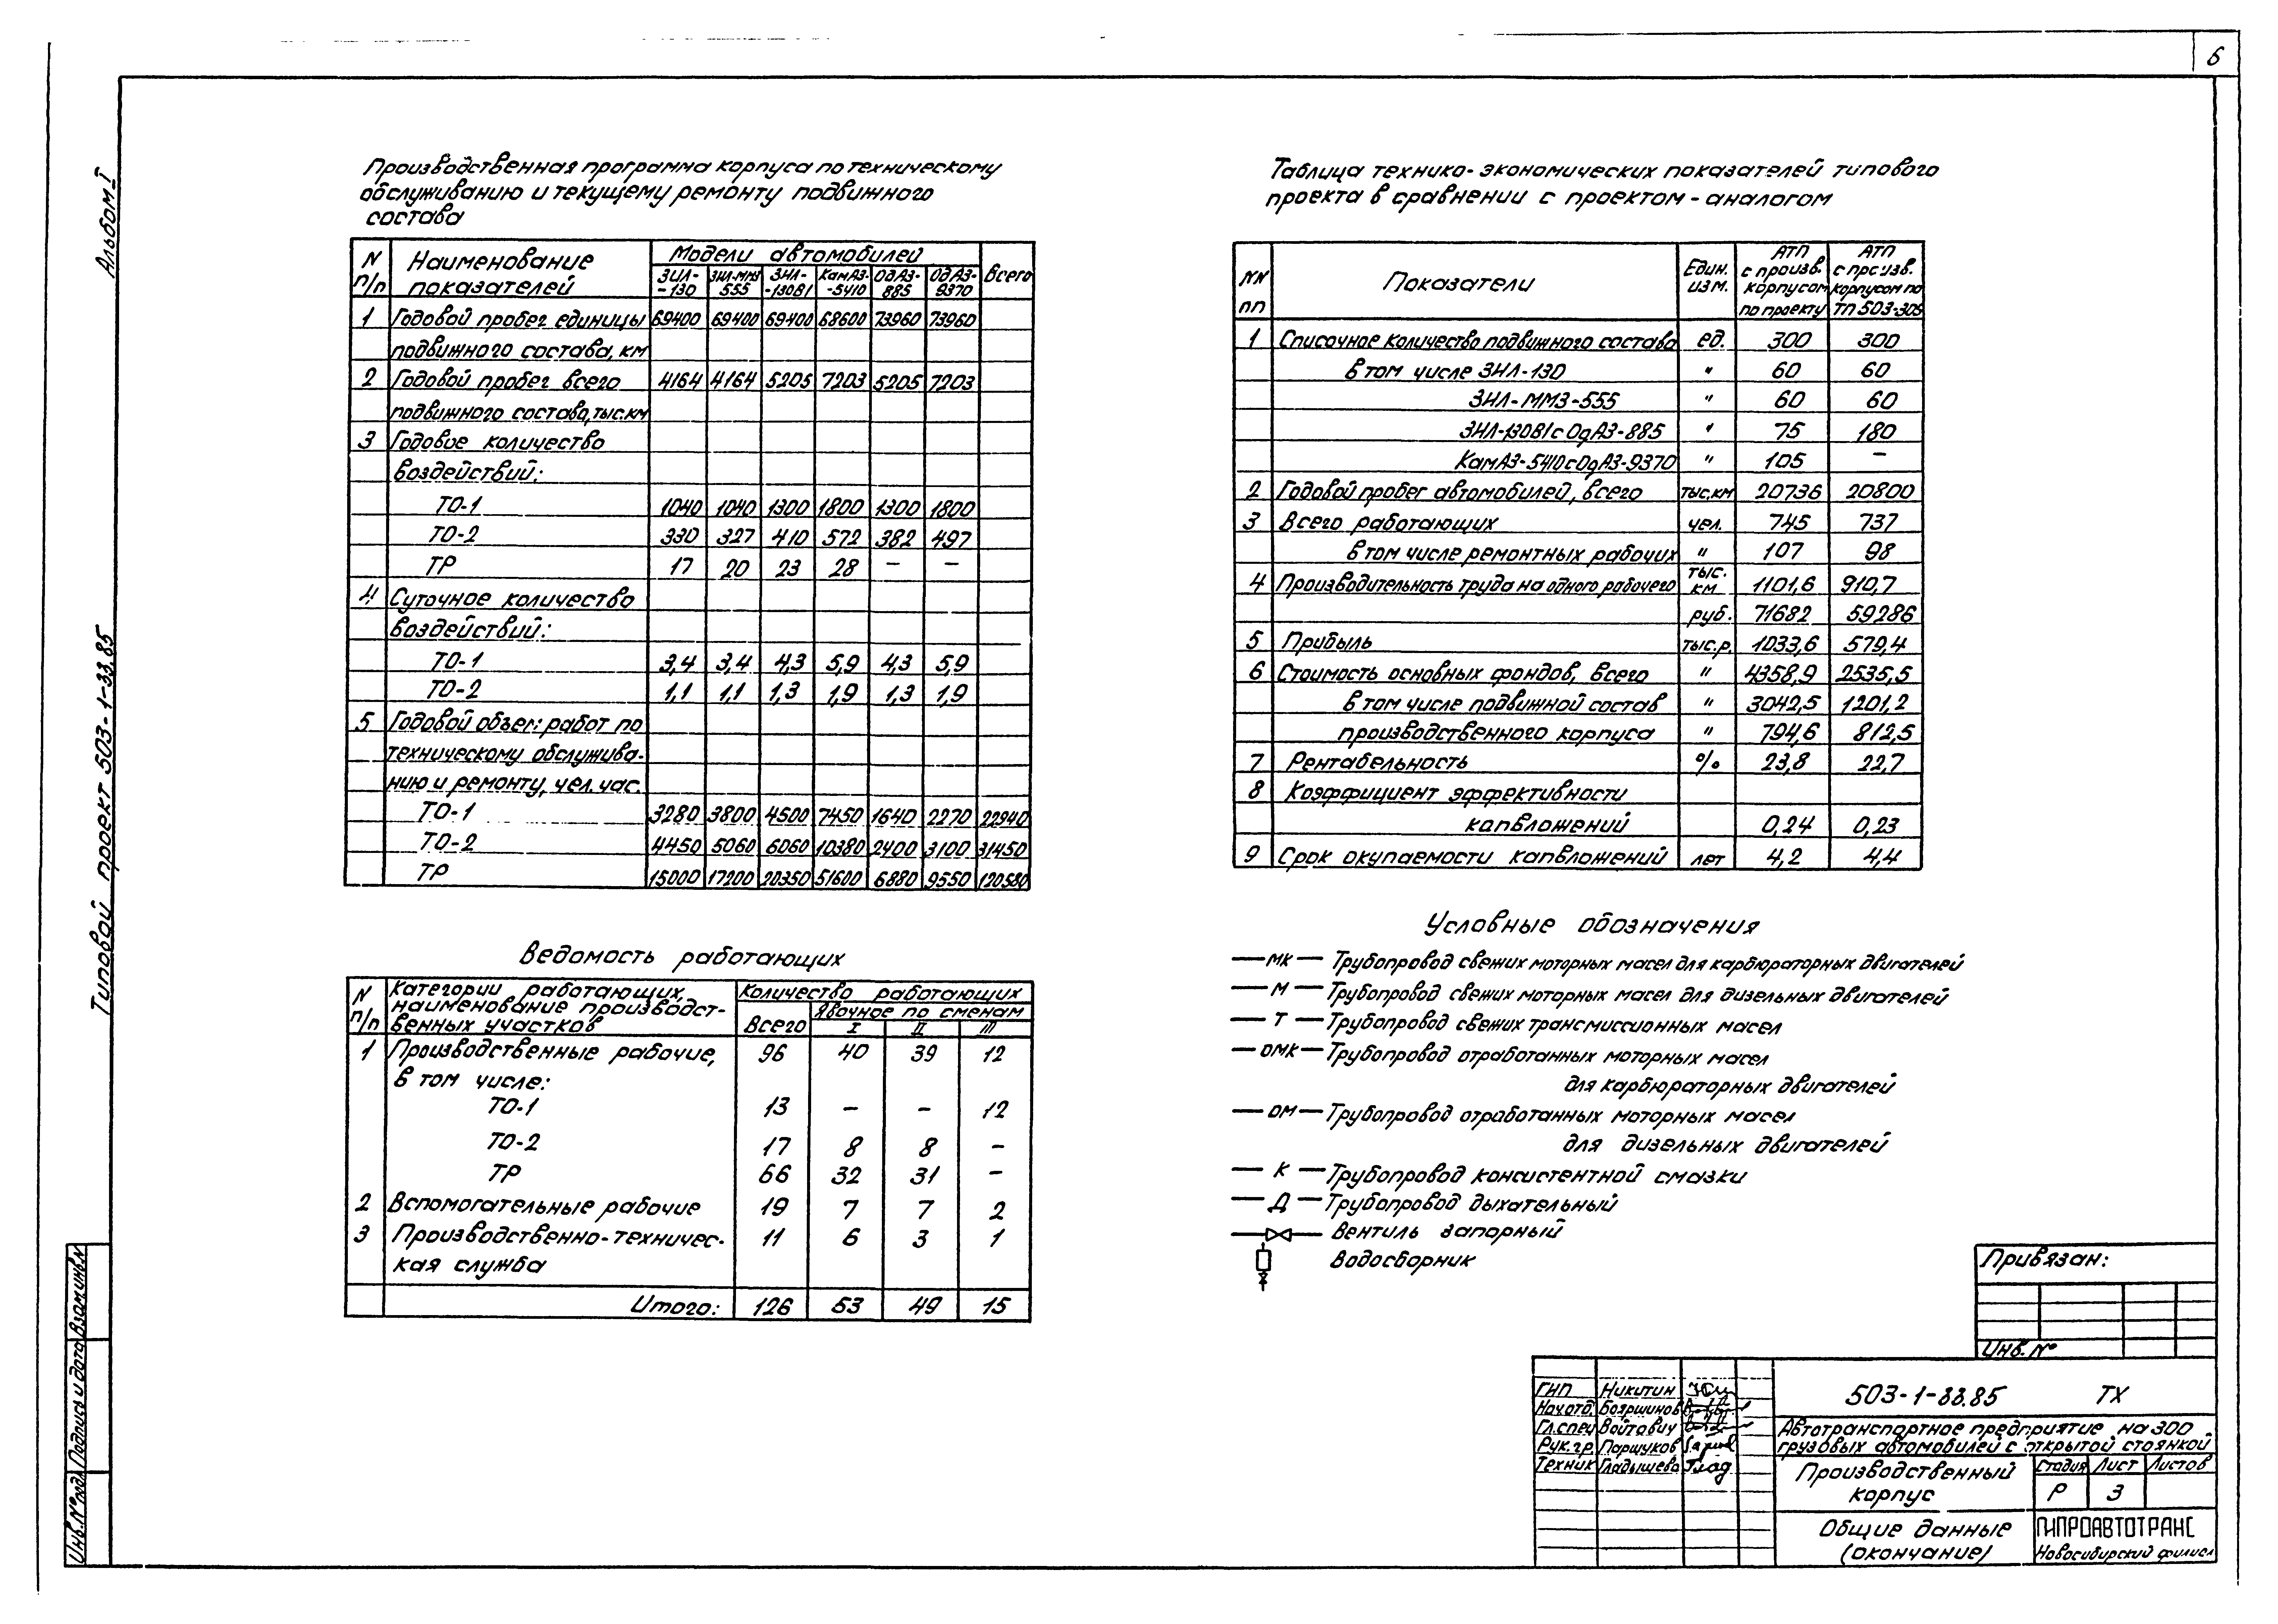 6
Альбом I
Типовой проект 503-1-33.85
Производственная программа корпуса по техническому
обслуживанию и текущему ремонту подвижного
состава
N п/п | Наименование показателей | Модели автомобилей | Всего
ЗИЛ-130 | ЗИЛ-ММЗ 555 | ЗИЛ-130В1 | КамАЗ-5410 | ОдАЗ-885 | ОдАЗ-9370
1 Годовой пробег единицы 69400 69400 69400 68600 73960 73960
подвижного состава, км
2 Годовой пробег всего 4164 4164 5205 7203 5205 7203
подвижного состава, тыс.км
3 Годовое количество
воздействий:
ТО-1 1040 1040 1300 1800 1300 1800
ТО-2 330 327 410 572 382 497
ТР 17 20 23 28 — —
4 Суточное количество
воздействий:
ТО-1 3,4 3,4 4,3 5,9 4,3 5,9
ТО-2 1,1 1,1 1,3 1,9 1,3 1,9
5 Годовой объем работ по
техническому обслужива-
нию и ремонту, чел. час.
ТО-1 3280 3800 4500 7450 1640 2270 22940
ТО-2 4450 5060 6060 10380 2400 3100 31450
ТР 15000 17200 20350 51600 6880 9550 120580
Ведомость работающих
N п/п | Категории работающих, наименование производственных участков | Количество работающих
Всего | Явочное по сменам
I II III
1 Производственные рабочие, 96 40 39 12
в том числе:
ТО-1 13 — — 12
ТО-2 17 8 8 —
ТР 66 32 31 —
2 Вспомогательные рабочие 19 7 7 2
3 Производственно-техничес- 11 6 3 1
кая служба
Итого: 126 53 49 15
Таблица технико-экономических показателей типового
проекта в сравнении с проектом-аналогом
NN пп | Показатели | Един. изм. | АТП с произв. корпусом по проекту | АТП с произв. корпусом по ТП 503-305
1 Списочное количество подвижного состава ед. 300 300
в том числе ЗИЛ-130 " 60 60
ЗИЛ-ММЗ-555 " 60 60
ЗИЛ-130В1 с ОдАЗ-885 " 75 180
КамАЗ-5410 с ОдАЗ-9370 " 105 —
2 Годовой пробег автомобилей, всего тыс.км 20736 20800
3 Всего работающих чел. 745 737
в том числе ремонтных рабочих " 107 98
4 Производительность труда на одного рабочего тыс. км 1101,6 910,7
руб. 71682 59286
5 Прибыль тыс.р. 1033,6 579,4
6 Стоимость основных фондов, всего " 4358,9 2535,5
в том числе подвижной состав " 3042,5 1201,2
производственного корпуса " 794,6 812,5
7 Рентабельность % 23,8 22,7
8 Коэффициент эффективности
капвложений 0,24 0,23
9 Срок окупаемости капвложений лет 4,2 4,4
Условные обозначения
— МК — Трубопровод свежих моторных масел для карбюраторных двигателей
— М — Трубопровод свежих моторных масел для дизельных двигателей
— Т — Трубопровод свежих трансмиссионных масел
— ОМК — Трубопровод отработанных моторных масел
для карбюраторных двигателей
— ОМ — Трубопровод отработанных моторных масел
для дизельных двигателей
— К — Трубопровод консистентной смазки
— Д — Трубопровод дыхательный
Вентиль запорный
Водосборник
Привязан:
Инв. №
ГИП Никитин
Нач.отд. Бояршинов
Гл.спец Войтович
Рук.гр. Паршуков
Техник Гладышева
503-1-33.85 ТХ
Автотранспортное предприятие на 300
грузовых автомобилей с открытой стоянкой
Производственный
корпус
Стадия Лист Листов
Р 3
Общие данные
(окончание)
ГИПРОАВТОТРАНС
Новосибирский филиал
Взам.инв.N
Подпись и дата
Инв.№ подл.